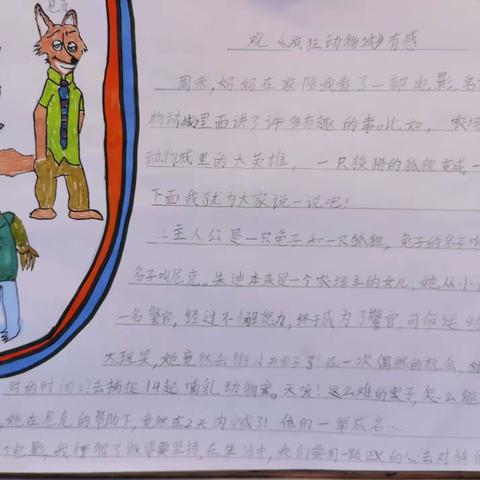 尼克
观《疯狂动物城》有感
周末,妈妈在家陪我看了一部电影,名
物动城里面讲了许多有趣的事。比如, 农场
动物城里的大英雄, 一只狡猾的狐狸变成一
下面我就为大家说一说吧!
主人公是一只兔子和一只狐狸,兔子的名子叫
名子叫尼克。朱迪本来是一个农场主的女儿,她从小
一名警官,经过不懈努力,终于成为了警官,可命运
大玩笑,她竟然去 在一次偶然的机会,她
时的时间 去捕捉14起哺乳动物案。天呐!这么难的案子,怎么能
她在尼克的帮助下,竟然在2天内完成了!他们一举成名…
电影,我懂得了做事要坚持,在生活中,我们要用一颗 的心去对待